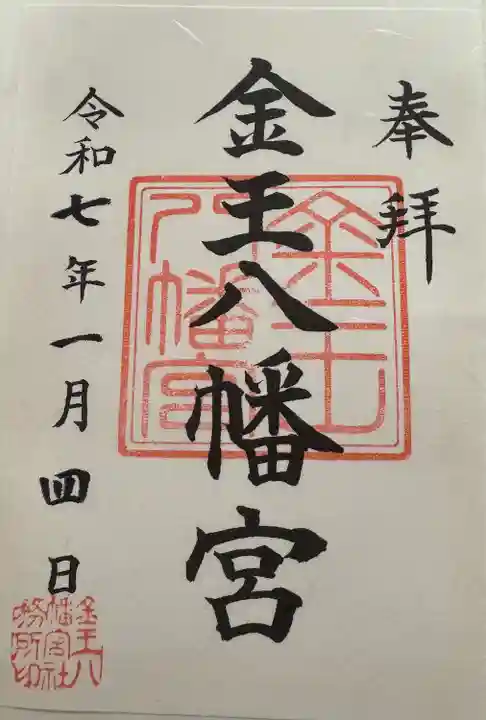 奉拝
金王八幡宮
金王八幡宮
令和七年一月四日
金王八幡宮社務所印